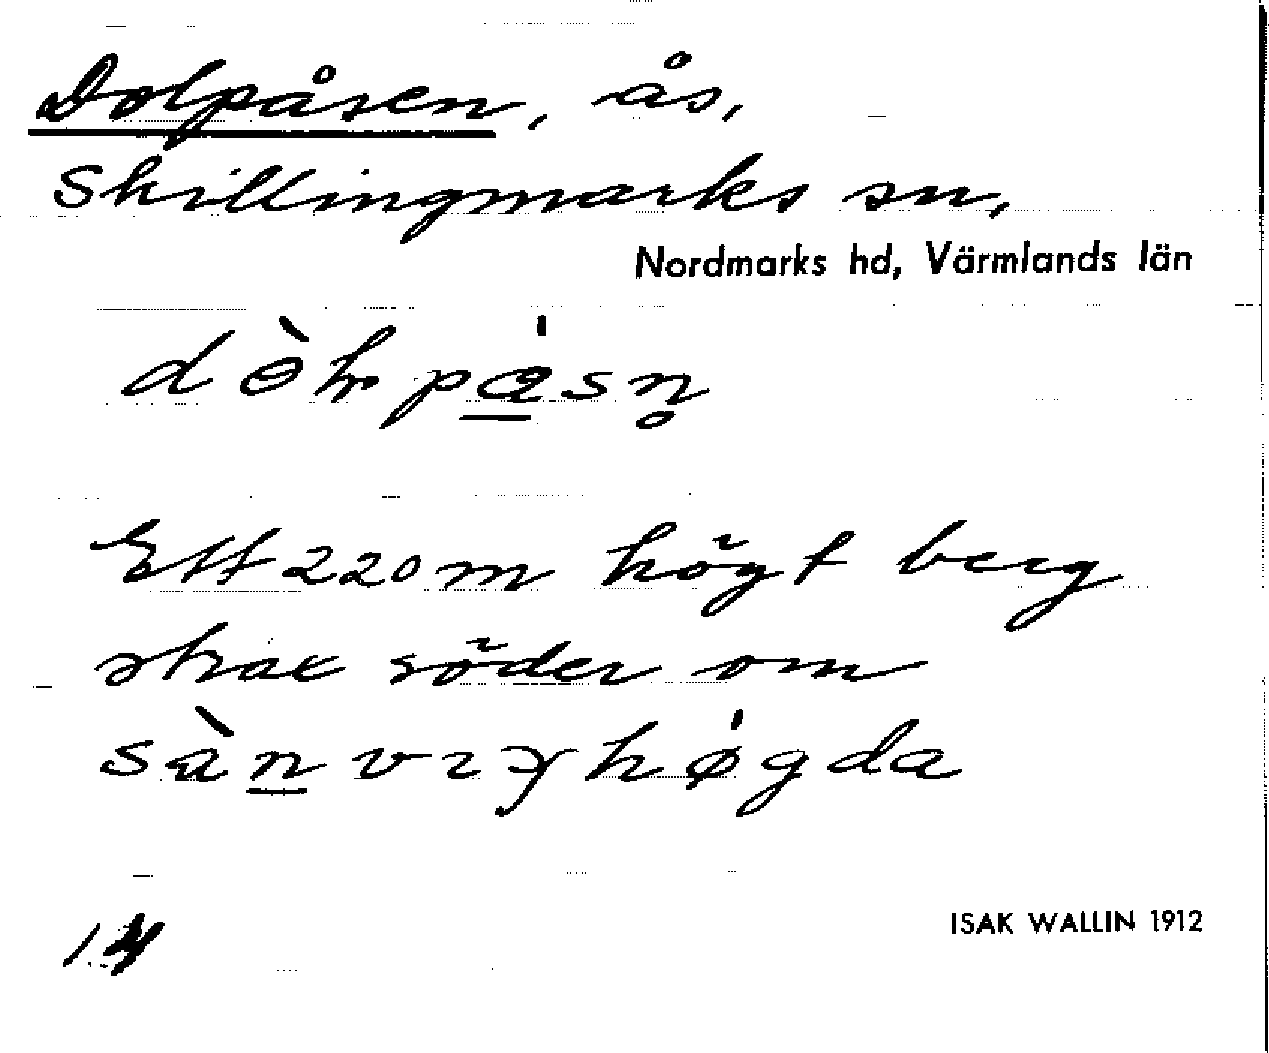 Dolpåsen, ås,
Skillingmarks sn,
Nordmarks hd, Värmlands län
Ett 220 m högt berg
strax söder om
14
ISAK WALLIN 1912